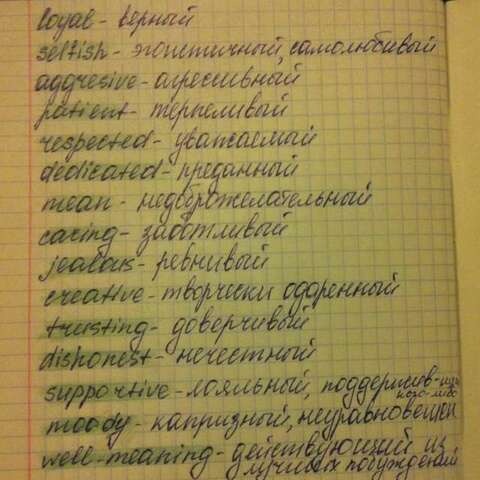 loyal - верный
selfish - эгоистичный, самолюбивый
aggresive - агрессивный
patient - терпеливый
respected - уважаемый
dedicated - преданный
mean - недоброжелательный
caring - заботливый
jealous - ревнивый
creative - творчески одаренный
trusting - доверчивый
dishonest - нечестный
supportive - лояльный, поддержив-щий
кого-либо
moody - капризный, неуравновешен
well-meaning - действующий из
лучших побуждений